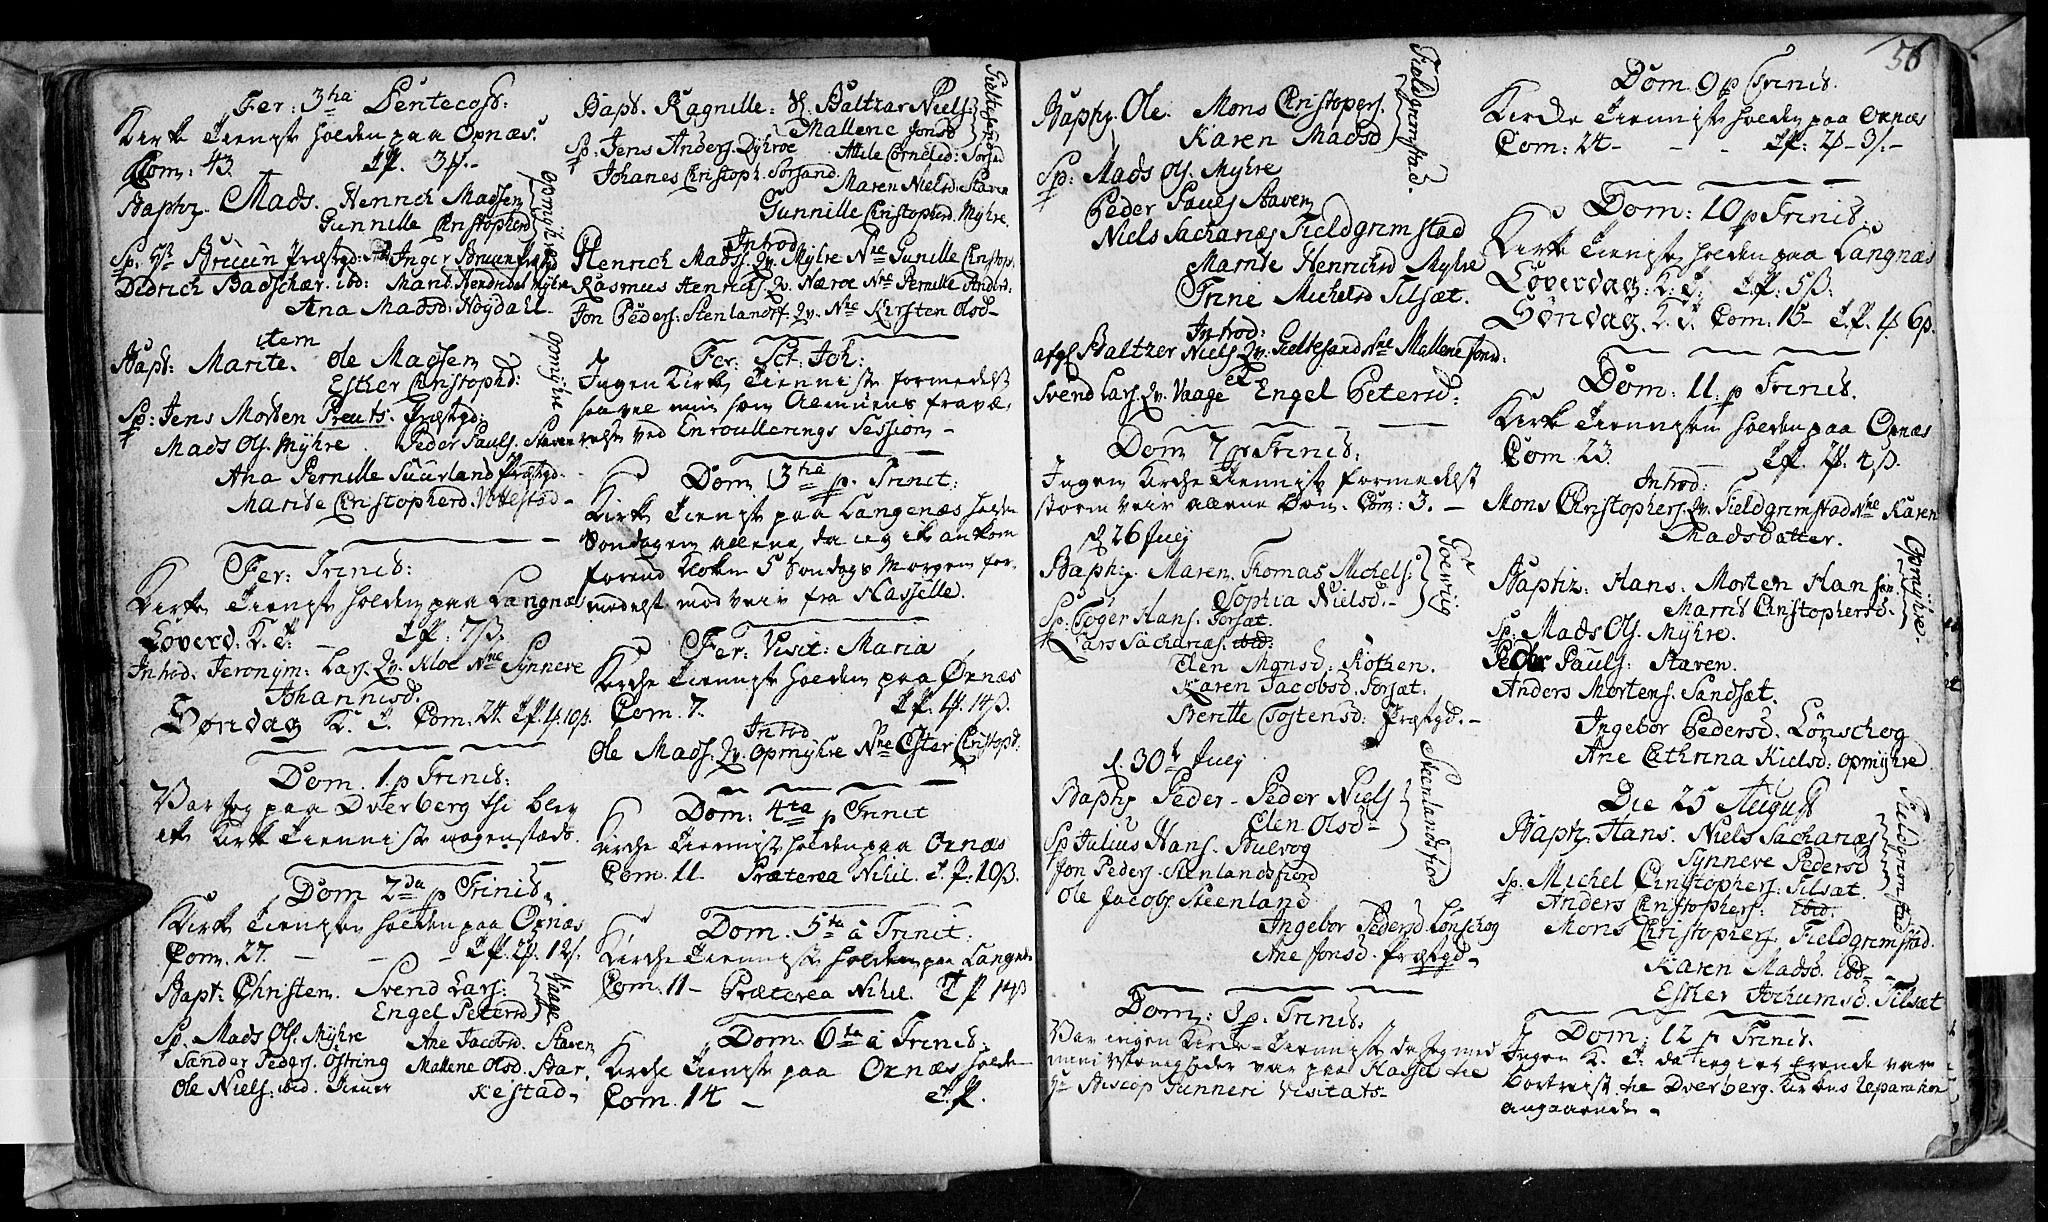 Fer: 3tia Pentecost:
Kirke Tieniste holden paa Ørnæs.
Com: 43. Tfl. 3ß.-
Baptz. Mads. Henrich Madsen
Gunnille Christopherd
Opmyhre
Sp: Hr Bruun Præstgd: Inger Bruun Præstgd
Didrich Badschær. ibd: Marit Hendrichsd Myhre
Ana Madsd: Høgdahl.
item
Bapt: Marite. Ole Madsen
Esther Christophd:
Opmyhre
Sp: Jens Morten Preuts. Præstgd:
Mads Ols. Myhre Peder Pauls. Staven
Ana Pernille Suurland Præstgd.
Maride Christopherd.
Fer: Trinit:
Kirke Tieniste holden paa Langnæs
Løverd: K. T: Tfl. 7ß.
Introd: Jeronym: Lars. Qv. Kloe Nne Synneve
Johannisd.
Søndag K. T. Com. 24. Tfl. 4. 10ß.
Dom. 1. p Trinit:
Var Jeg paa Dverberg thi blev
ett Kirke Tienniste nogenstæds.
Dom 2da p Trinit.
Kirke Tieniste holden paa Ørnæs
Com. 27. - - - Tfl. 2ß. 12ß.
Bapt: Christen. Svend Lars:
Engel Petersd
Vaage
Sp. Mads Ols. Myhre Ane Jacobsd. Staven
Sander Peders. Østring Mallene Olsd. Bar,
Ole Niels: ibid. Tiener Kestad,
Bapt. Ragnille: Baltzar Niels:
Mallene Jonsd
Gieltesand
Sp. Jens Anders. Dyhroe Attile Cornelied: Sørsand
Johanes Christoph. Sørsand.
Maren Nielsd: Staven
Gunnille Christopherd. Myhre.
Introd
Henrich Mads. Qv. Myhre Nne Gunille Christop.
Rasmus Henrichs Qv. Næroe Nne Pernille Anders:
Jon Peders: Stenlandsf. Qv. Nne Kirsten Olsd-
Fer: Sct. Joh:
Ingen Kirke Tienniste formedelst
saavel min som Almuens fravæ,
relse ved Enroullerings Session-
Dom 3tia p. Trinit:
Kirke Tieniste paa Langenæs holden
Søndagen allene, da ieg ik ankom
forend Klokn 5 Søndags Morgen for,
medelst modveir fra Hasselle.
Fer: Visit: Maria
Kirche Tieniste holden paa Ørnæs
Com. 7. Tfl. 4ß. 14ß.
Introd
Ole Mads. Qv. Opmyhre Nne Ester Christopd.
Dom: 4ta p Trinit
Kirche Tienniste holden paa Ørnæs
Com. 11. Præterea Nihil. T. f. 10ß.
Dom. 5ta a Trinit:
Kirche Tienniste holden paa Langnæs
Com. 11- Præterea Nihil. Tf 14ß
Dom. 6ta a Trinit:
Kirche Tieniste paa Ørnæs holden
Com. 14 - T.f.
56
Baptz. Ole. Mons Christopers.
Karen Madsd
Fieldgrimstad.
Sp: Mads Ols. Myhre
Peder Pauls Staven
Niels Sacharias Fieldgrimstad
Marite Henrichsd Myhre
Trine Michelsd Tilsæt.
Introd:
Baltzer Niels. Qv. Gieltesand Nne Mallene Jonsd:
Svend Lars. Qv. Vaage Engel Petersd:
Dom 7 p Trinit:
Ingen Kirche Tienniste formedelst
storm veir allene Bøn. Com: 3. -
d 26 July
Bapt: Maren Thomas Michels:
Sophia Nielsd.-
Sp: Tøger Hans. Forsæt.
Lars Sacharias. ibid:
Elen Mgnsd: Kothen.
Karen Jacobsd. Forsæt:
Beritte Tostensd: Præstgd.-
d. 30t July
Baptz Peder- Peder Niels
Elen Olsd-
Steenlandsfiord
Sp Julius Hans. Hulvog
Jon Peders. Stenlandsfiord
Ole Jacobs Steenland
Ingebor Pedersd. Lønschog
Ane Jonsd. Præstgd-
Dom: 8 p. Trinit.
Var ingen Kirche-Tienniste da Jeg med
var paa Hassel til
Hr Biscop Gunneri Visitats-
Dom. 9 p Trinit.
Kirche Tienniste holden paa Ørnæs
Com: 24- - - Tfl: 2ß- 3ß.-
Dom: 10 p Trinit:
Kirke Tieniste holden paa Langnæs
Løverdag: K. T: Tfl: 5ß:
Søndag. K. T. Com. 15- T. f. 4ß 6ß.
Dom: 11. p Trinit.
Kirke Tieniste holden paa Ørnæs
Com 23. Tfl. 7ß. 4ß.
Introd:
Mons Christophers. Qv. Fieldgrimstad Nne Karen
Madsdatter.
Baptiz. Hans. Morten Hansen
Marrit Christophersd.
Opmyhre.
Sp: Mads Ols. Myhre.
Peder Pauls: Staven.
Anders Mortens. Sandsæt.
Ingebor Pedersd. Lønschog
Ane Cathrina Kielsd: Opmyhre
Die 25 August
Baptz. Hans. Niels Sacharias
Synneve Pedersd
Fieldgrimstad
Sp: Michel Christophers: Tilsæt.
Anders Christophers: ibid.
Mons Christophers. Fieldgrimstad.
Karen Madsd. ibd-
Esther Jochumsd. Tilsæt
Dom: 12 p Trinit.
Ingen K. T. da Jeg i et Erende var
bortreist til Dverberg. Kirkens Reparation
angaaende.